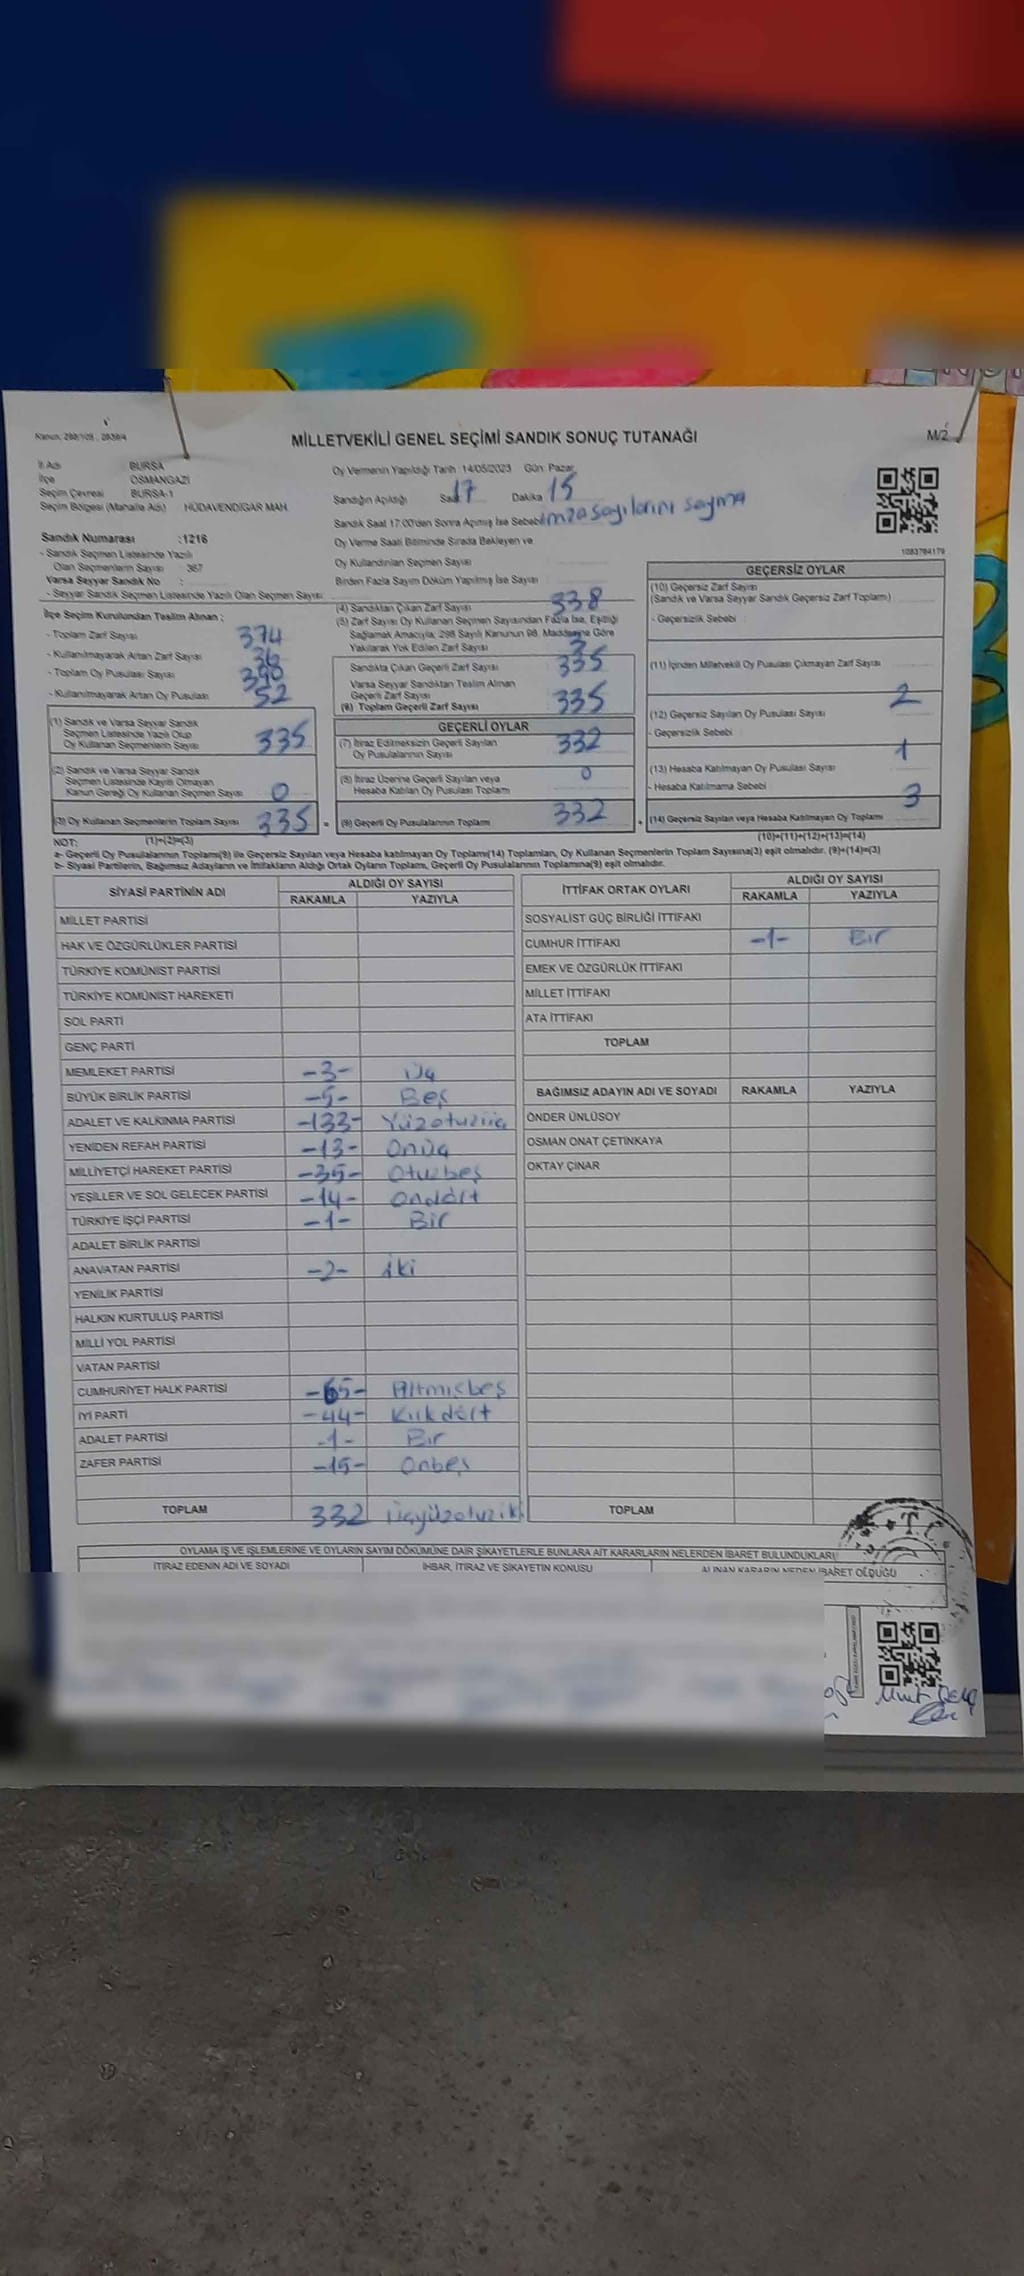 Kanun: 298/105, 2839/4
MİLLETVEKİLİ GENEL SEÇİMİ SANDIK SONUÇ TUTANAĞI
M/2
İl Adı BURSA
İlçe OSMANGAZİ
Seçim Çevresi BURSA-1
Seçim Bölgesi (Mahalle Adı) HÜDAVENDİGAR MAH.
Oy Vermenin Yapıldığı Tarih :14/05/2023 Gün: Pazar
Sandığın Açıldığı Saat 17 Dakika 15
Sandık Saat 17:00'den Sonra Açılmış İse Sebebi imza sayılarını sayma
Sandık Numarası :1216
- Sandık Seçmen Listesinde Yazılı
Olan Seçmenlerin Sayısı : 367
Varsa Seyyar Sandık No :
- Seyyar Sandık Seçmen Listesinde Yazılı Olan Seçmen Sayısı
Oy Verme Saati Bitiminde Sırada Bekleyen ve
Oy Kullandırılan Seçmen Sayısı
Birden Fazla Sayım Döküm Yapılmış İse Sayısı
1083784179
İlçe Seçim Kurulundan Teslim Alınan :
- Toplam Zarf Sayısı 374
- Kullanılmayarak Artan Zarf Sayısı 36
- Toplam Oy Pusulası Sayısı 390
- Kullanılmayarak Artan Oy Pusulası 52
(1) Sandık ve Varsa Seyyar Sandık
Seçmen Listesinde Yazılı Olup
Oy Kullanan Seçmenlerin Sayısı 335
(2) Sandık ve Varsa Seyyar Sandık
Seçmen Listesinde Kayıtlı Olmayan
Kanun Gereği Oy Kullanan Seçmen Sayısı 0
(3) Oy Kullanan Seçmenlerin Toplam Sayısı 335
(1)+(2)=(3)
(4) Sandıktan Çıkan Zarf Sayısı 338
(5) Zarf Sayısı Oy Kullanan Seçmen Sayısından Fazla İse, Eşitliği
Sağlamak Amacıyla; 298 Sayılı Kanunun 98. Maddesine Göre
Yakılarak Yok Edilen Zarf Sayısı 3
Sandıkta Çıkan Geçerli Zarf Sayısı 335
Varsa Seyyar Sandıktan Teslim Alınan
Geçerli Zarf Sayısı
(6) Toplam Geçerli Zarf Sayısı 335
GEÇERLİ OYLAR
(7) İtiraz Edilmeksizin Geçerli Sayılan
Oy Pusulalarının Sayısı 332
(8) İtiraz Üzerine Geçerli Sayılan veya
Hesaba Katılan Oy Pusulası Toplamı 0
= (9) Geçerli Oy Pusulalarının Toplamı 332
GEÇERSİZ OYLAR
(10) Geçersiz Zarf Sayısı
(Sandık ve Varsa Seyyar Sandık Geçersiz Zarf Toplamı)
- Geçersizlik Sebebi :
(11) İçinden Milletvekili Oy Pusulası Çıkmayan Zarf Sayısı
(12) Geçersiz Sayılan Oy Pusulası Sayısı 2
- Geçersizlik Sebebi :
(13) Hesaba Katılmayan Oy Pusulası Sayısı 1
- Hesaba Katılmama Sebebi
+ (14) Geçersiz Sayılan veya Hesaba Katılmayan Oy Toplamı 3
(10)+(11)+(12)+(13)=(14)
NOT:
a- Geçerli Oy Pusulalarının Toplamı(9) ile Geçersiz Sayılan veya Hesaba katılmayan Oy Toplamı(14) Toplamları, Oy Kullanan Seçmenlerin Toplam Sayısına(3) eşit olmalıdır. (9)+(14)=(3)
b- Siyasi Partilerin, Bağımsız Adayların ve İttifakların Aldığı Ortak Oyların Toplamı, Geçerli Oy Pusulalarının Toplamına(9) eşit olmalıdır.
SİYASİ PARTİNİN ADI ALDIĞI OY SAYISI
RAKAMLA YAZIYLA
MİLLET PARTİSİ
HAK VE ÖZGÜRLÜKLER PARTİSİ
TÜRKİYE KOMÜNİST PARTİSİ
TÜRKİYE KOMÜNİST HAREKETİ
SOL PARTİ
GENÇ PARTİ
MEMLEKET PARTİSİ -3- Üç
BÜYÜK BİRLİK PARTİSİ -5- Beş
ADALET VE KALKINMA PARTİSİ -133- Yüzotuzüç
YENİDEN REFAH PARTİSİ -13- Onüç
MİLLİYETÇİ HAREKET PARTİSİ -35- Otuzbeş
YEŞİLLER VE SOL GELECEK PARTİSİ -14- Ondört
TÜRKİYE İŞÇİ PARTİSİ -1- Bir
ADALET BİRLİK PARTİSİ
ANAVATAN PARTİSİ -2- iki
YENİLİK PARTİSİ
HALKIN KURTULUŞ PARTİSİ
MİLLİ YOL PARTİSİ
VATAN PARTİSİ
CUMHURİYET HALK PARTİSİ -65- Altmışbeş
İYİ PARTİ -44- Kırkdört
ADALET PARTİSİ -1- Bir
ZAFER PARTİSİ -15- Onbeş
TOPLAM 332 Üçyüzotuziki
İTTİFAK ORTAK OYLARI ALDIĞI OY SAYISI
RAKAMLA YAZIYLA
SOSYALİST GÜÇ BİRLİĞİ İTTİFAKI
CUMHUR İTTİFAKI -1- Bir
EMEK VE ÖZGÜRLÜK İTTİFAKI
MİLLET İTTİFAKI
ATA İTTİFAKI
TOPLAM
BAĞIMSIZ ADAYIN ADI VE SOYADI RAKAMLA YAZIYLA
ÖNDER ÜNLÜSOY
OSMAN ONAT ÇETİNKAYA
OKTAY ÇINAR
TOPLAM
T.C.
OYLAMA İŞ VE İŞLEMLERİNE VE OYLARIN SAYIM DÖKÜMÜNE DAİR ŞİKAYETLERLE BUNLARA AİT KARARLARIN NELERDEN İBARET BULUNDUKLARI
İTİRAZ EDENİN ADI VE SOYADI İHBAR, İTİRAZ VE ŞİKAYETİN KONUSU ALINAN KARARIN NEDEN İBARET OLDUĞU